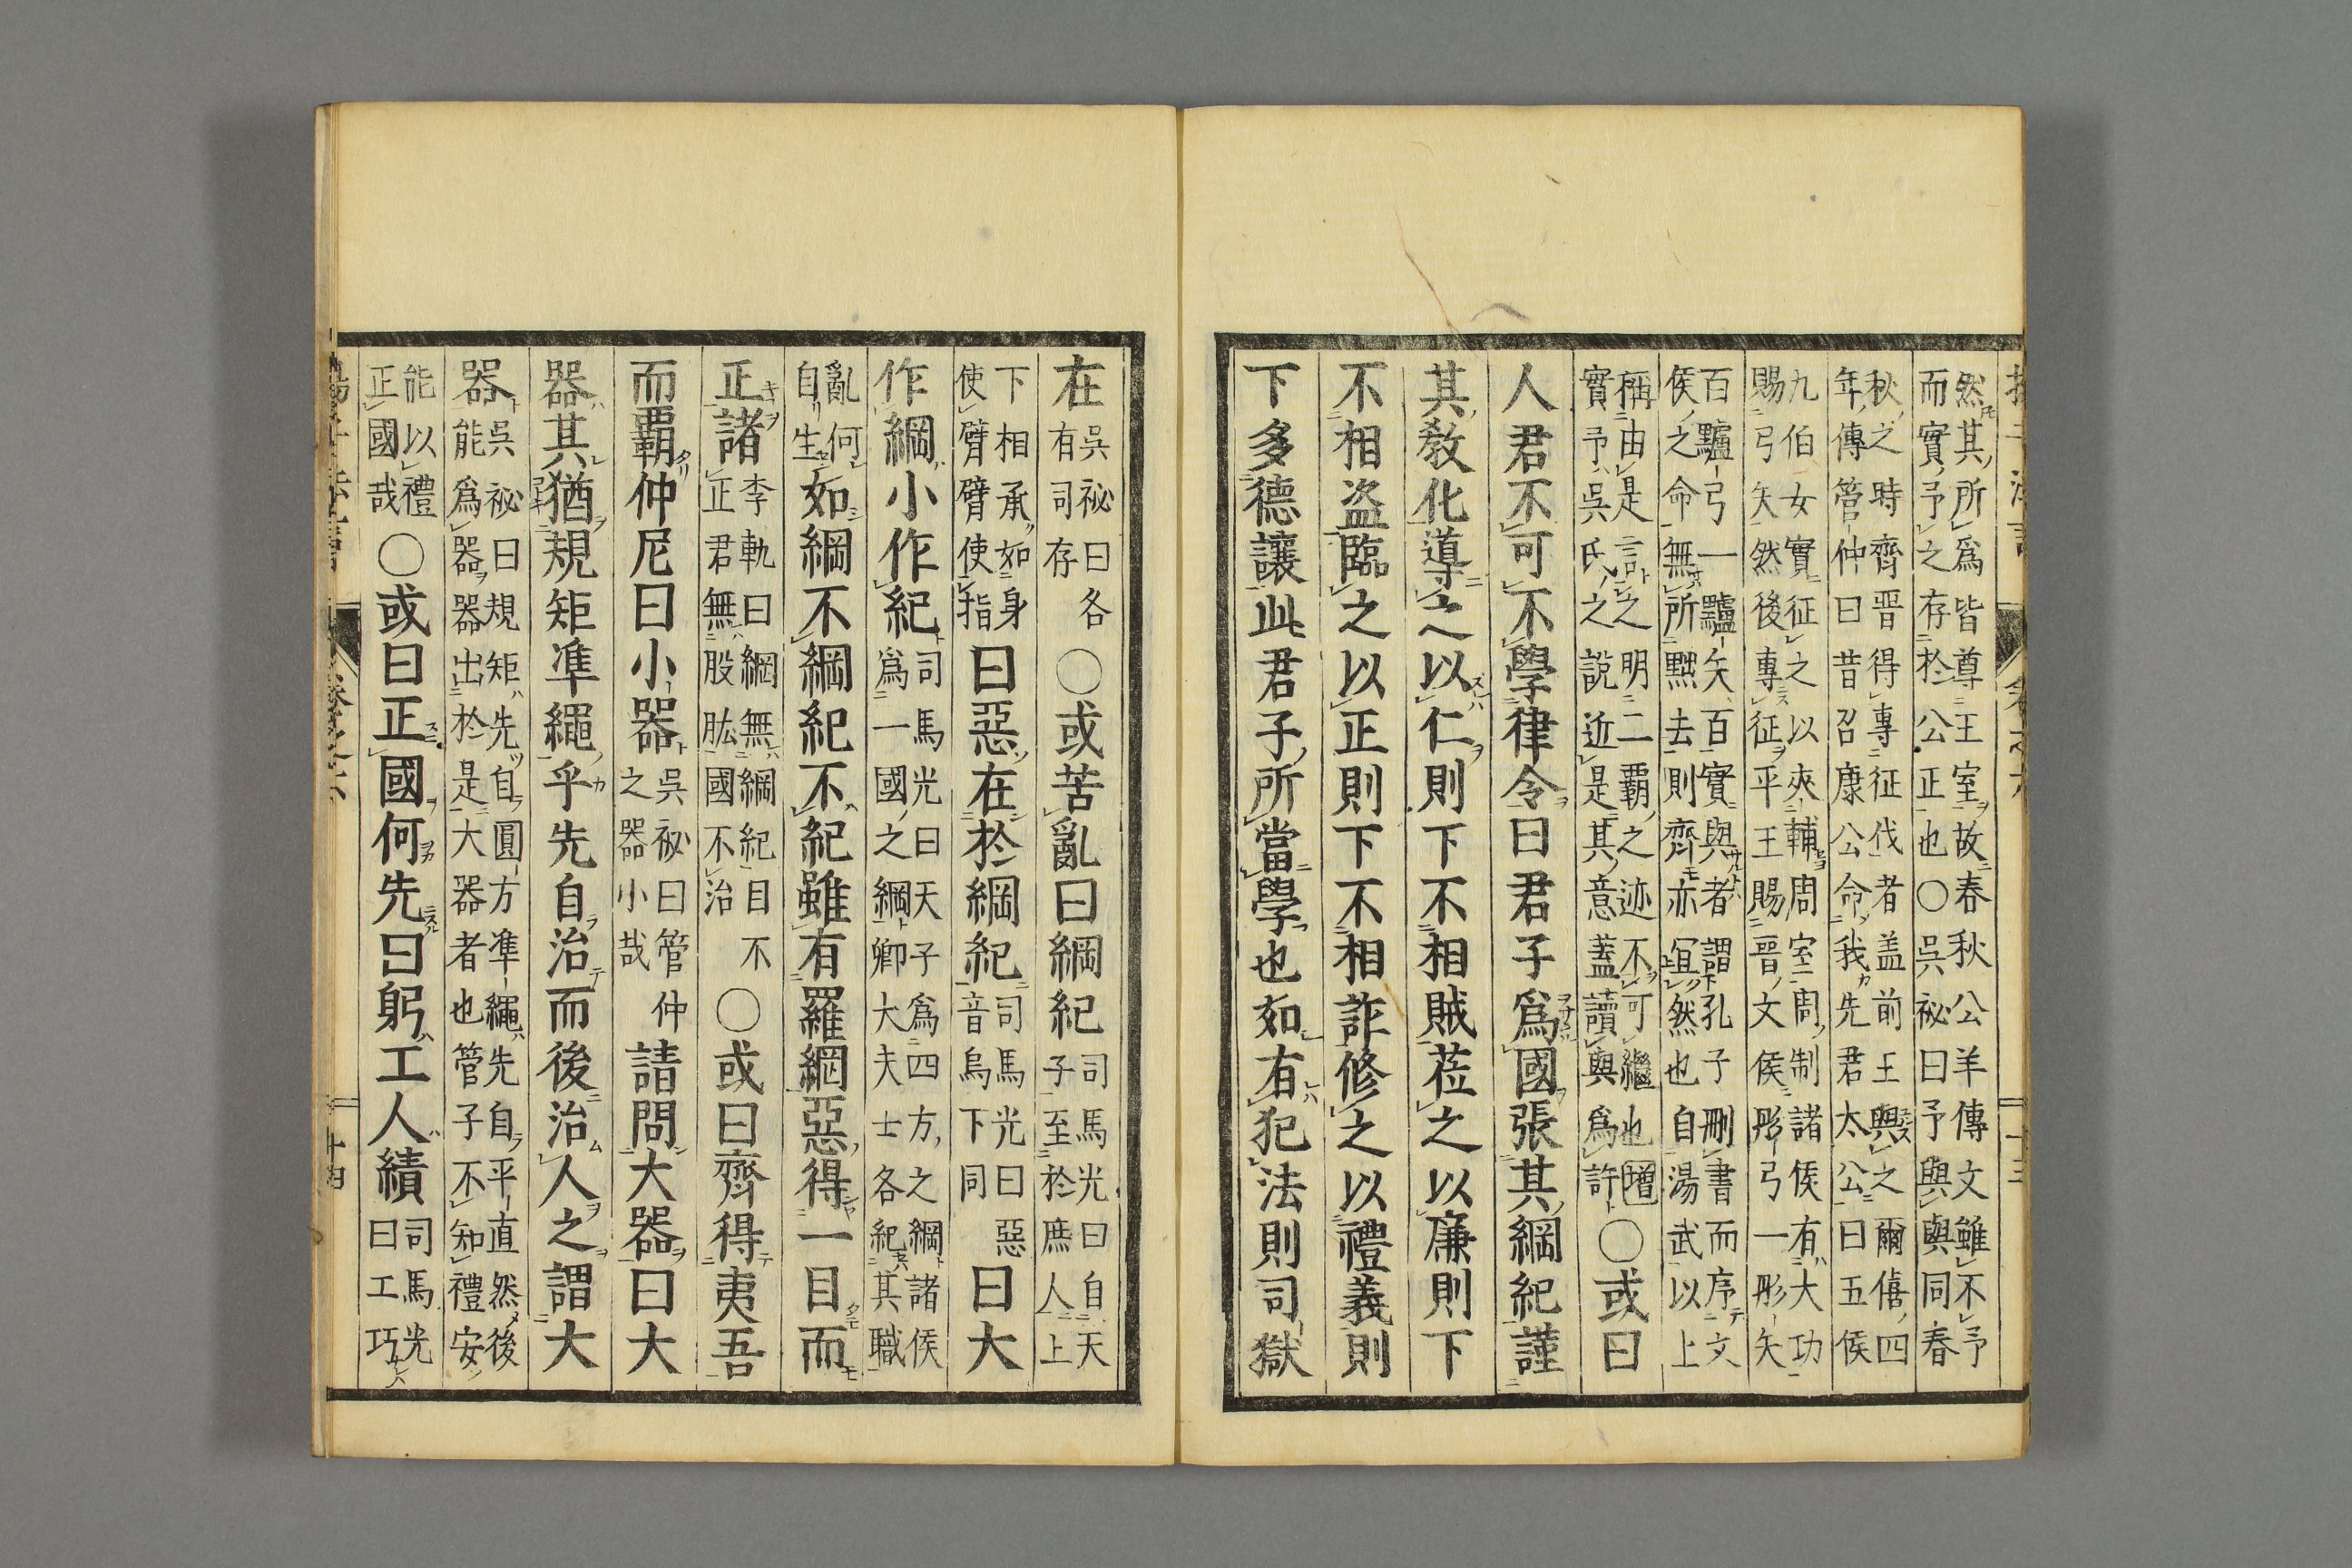 然其所爲皆尊王室故春秋公羊傳文雖不予
而實予之存於公正也○吳祕曰予與與同春
秋之時齊晋得專征伐者盖前王興之爾僖四
年傳管仲曰昔召康公命我先君太公曰五侯
九伯女實征之以夾輔周室周制諸侯有大功
賜弓矢然後專征平王賜晋文侯彤弓一彤矢
百黸弓一黸矢百實與者謂孔子刪書而序文
侯之命無所黙去則齊亦寘然也自湯武以上
稱由是言之明二覇之迹不可繼也増
實予吳氏之說近是其意蓋讀與爲許○或曰
人君不可不學律令曰君子爲國張其綱紀謹
其敎化導之以仁則下不相賊莅之以廉則下
不相盜臨之以正則下不相詐修之以禮義則
下多德讓此君子所當學也如有犯法則司獄
在吳祕曰各有司存○或苦亂曰綱紀司馬光曰自天子至於庶人上
下相承如身使臂臂使指曰惡在於綱紀司馬光曰惡音烏下同曰大
作綱小作紀司馬光曰天子爲四方之綱諸侯爲一國之綱卿大夫士各紀其職
亂何自生如綱不綱紀不紀雖有羅網惡得一目而
正諸李軌曰綱無綱紀目不正君無股肱國不治○或曰齊得夷吾
而覇仲尼曰小器吳祕曰管仲之器小哉請問大器曰大
器其猶規矩準繩乎先自治而後治人之謂大
器吳祕曰規矩先自圓方準繩先自平直然後能爲器器出於是大器者也管子不知禮安
能以禮正國哉○或曰正國何先曰躬工人績司馬光曰工巧